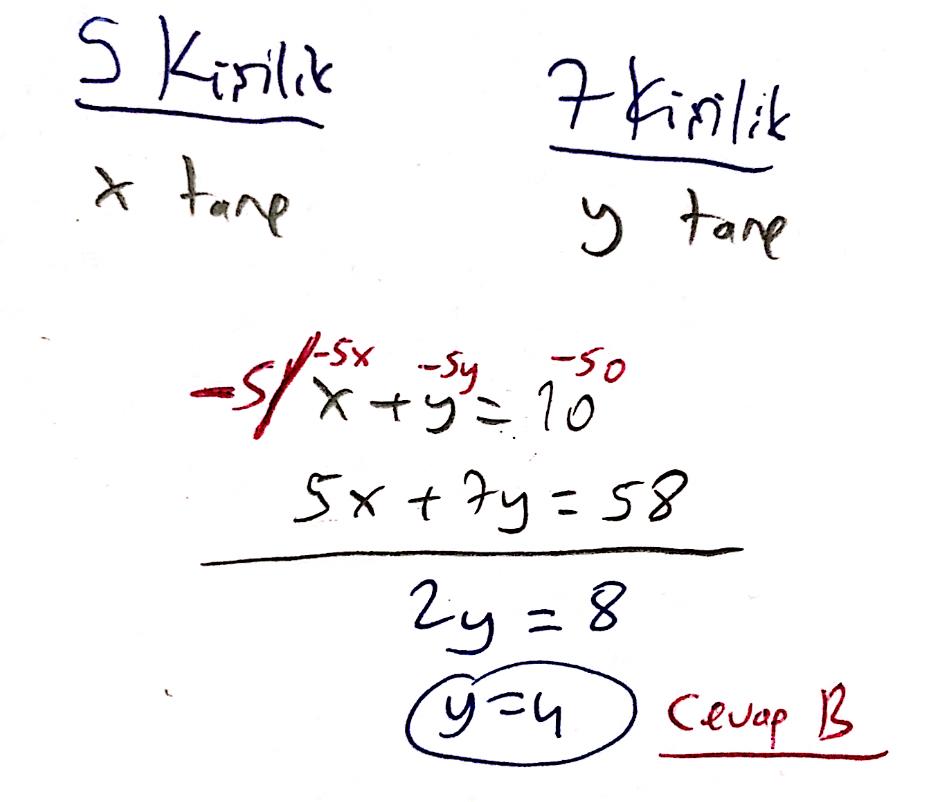 5 Kişilik 7 Kişilik
x tane y tane
-5x -5y -50
-5/ x + y = 10
5x + 7y = 58
2y = 8
y = 4 Cevap B